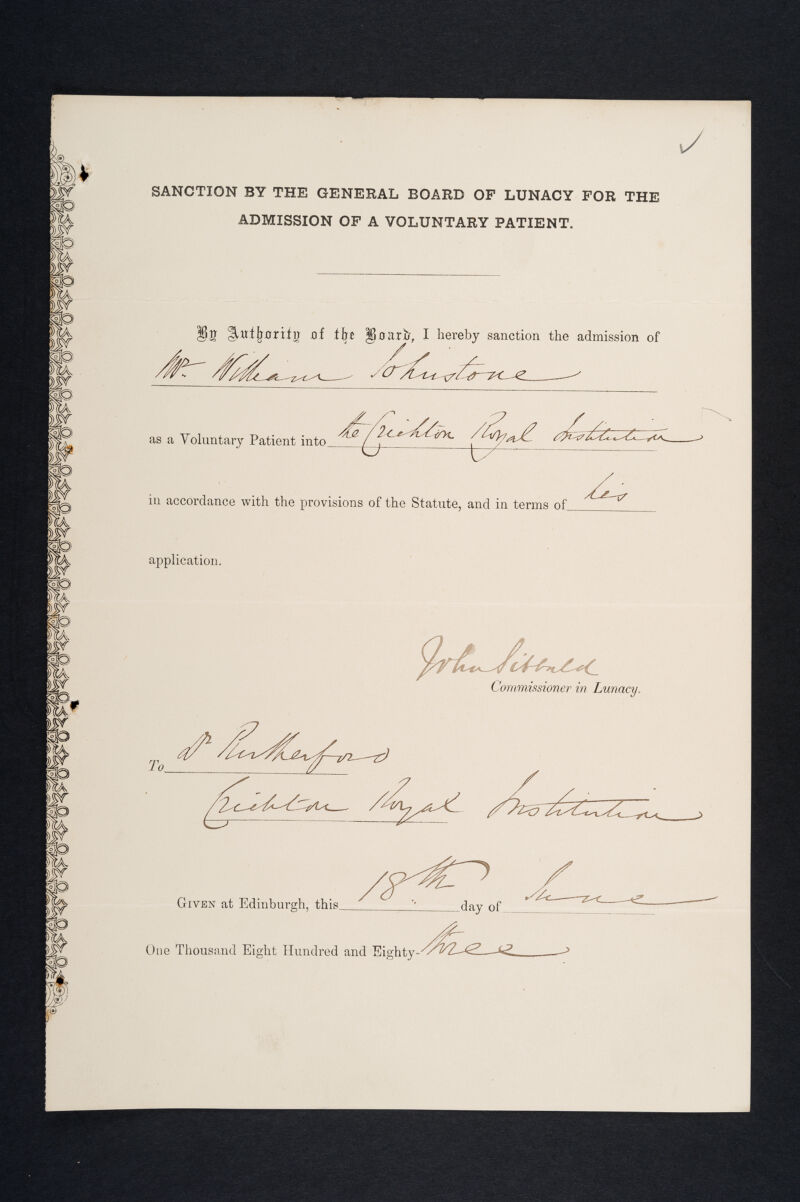 SANCTION BY THE GENERAL BOARD OF LUNACY FOR THE
ADMISSION OF A VOLUNTARY PATIENT.
By Authority of the Board, I hereby sanction the admission of
Mr. William Johnstone
as a Voluntary Patient into the Crichton Royal Institution
in accordance with the provisions of the Statute, and in terms of his
application.
John Sibbald
Commissioner in Lunacy.
To Dr Rutherford
Crichton Royal Institution
GIVEN at Edinburgh, this 18th day of June
One Thousand Eight Hundred and Eighty-three